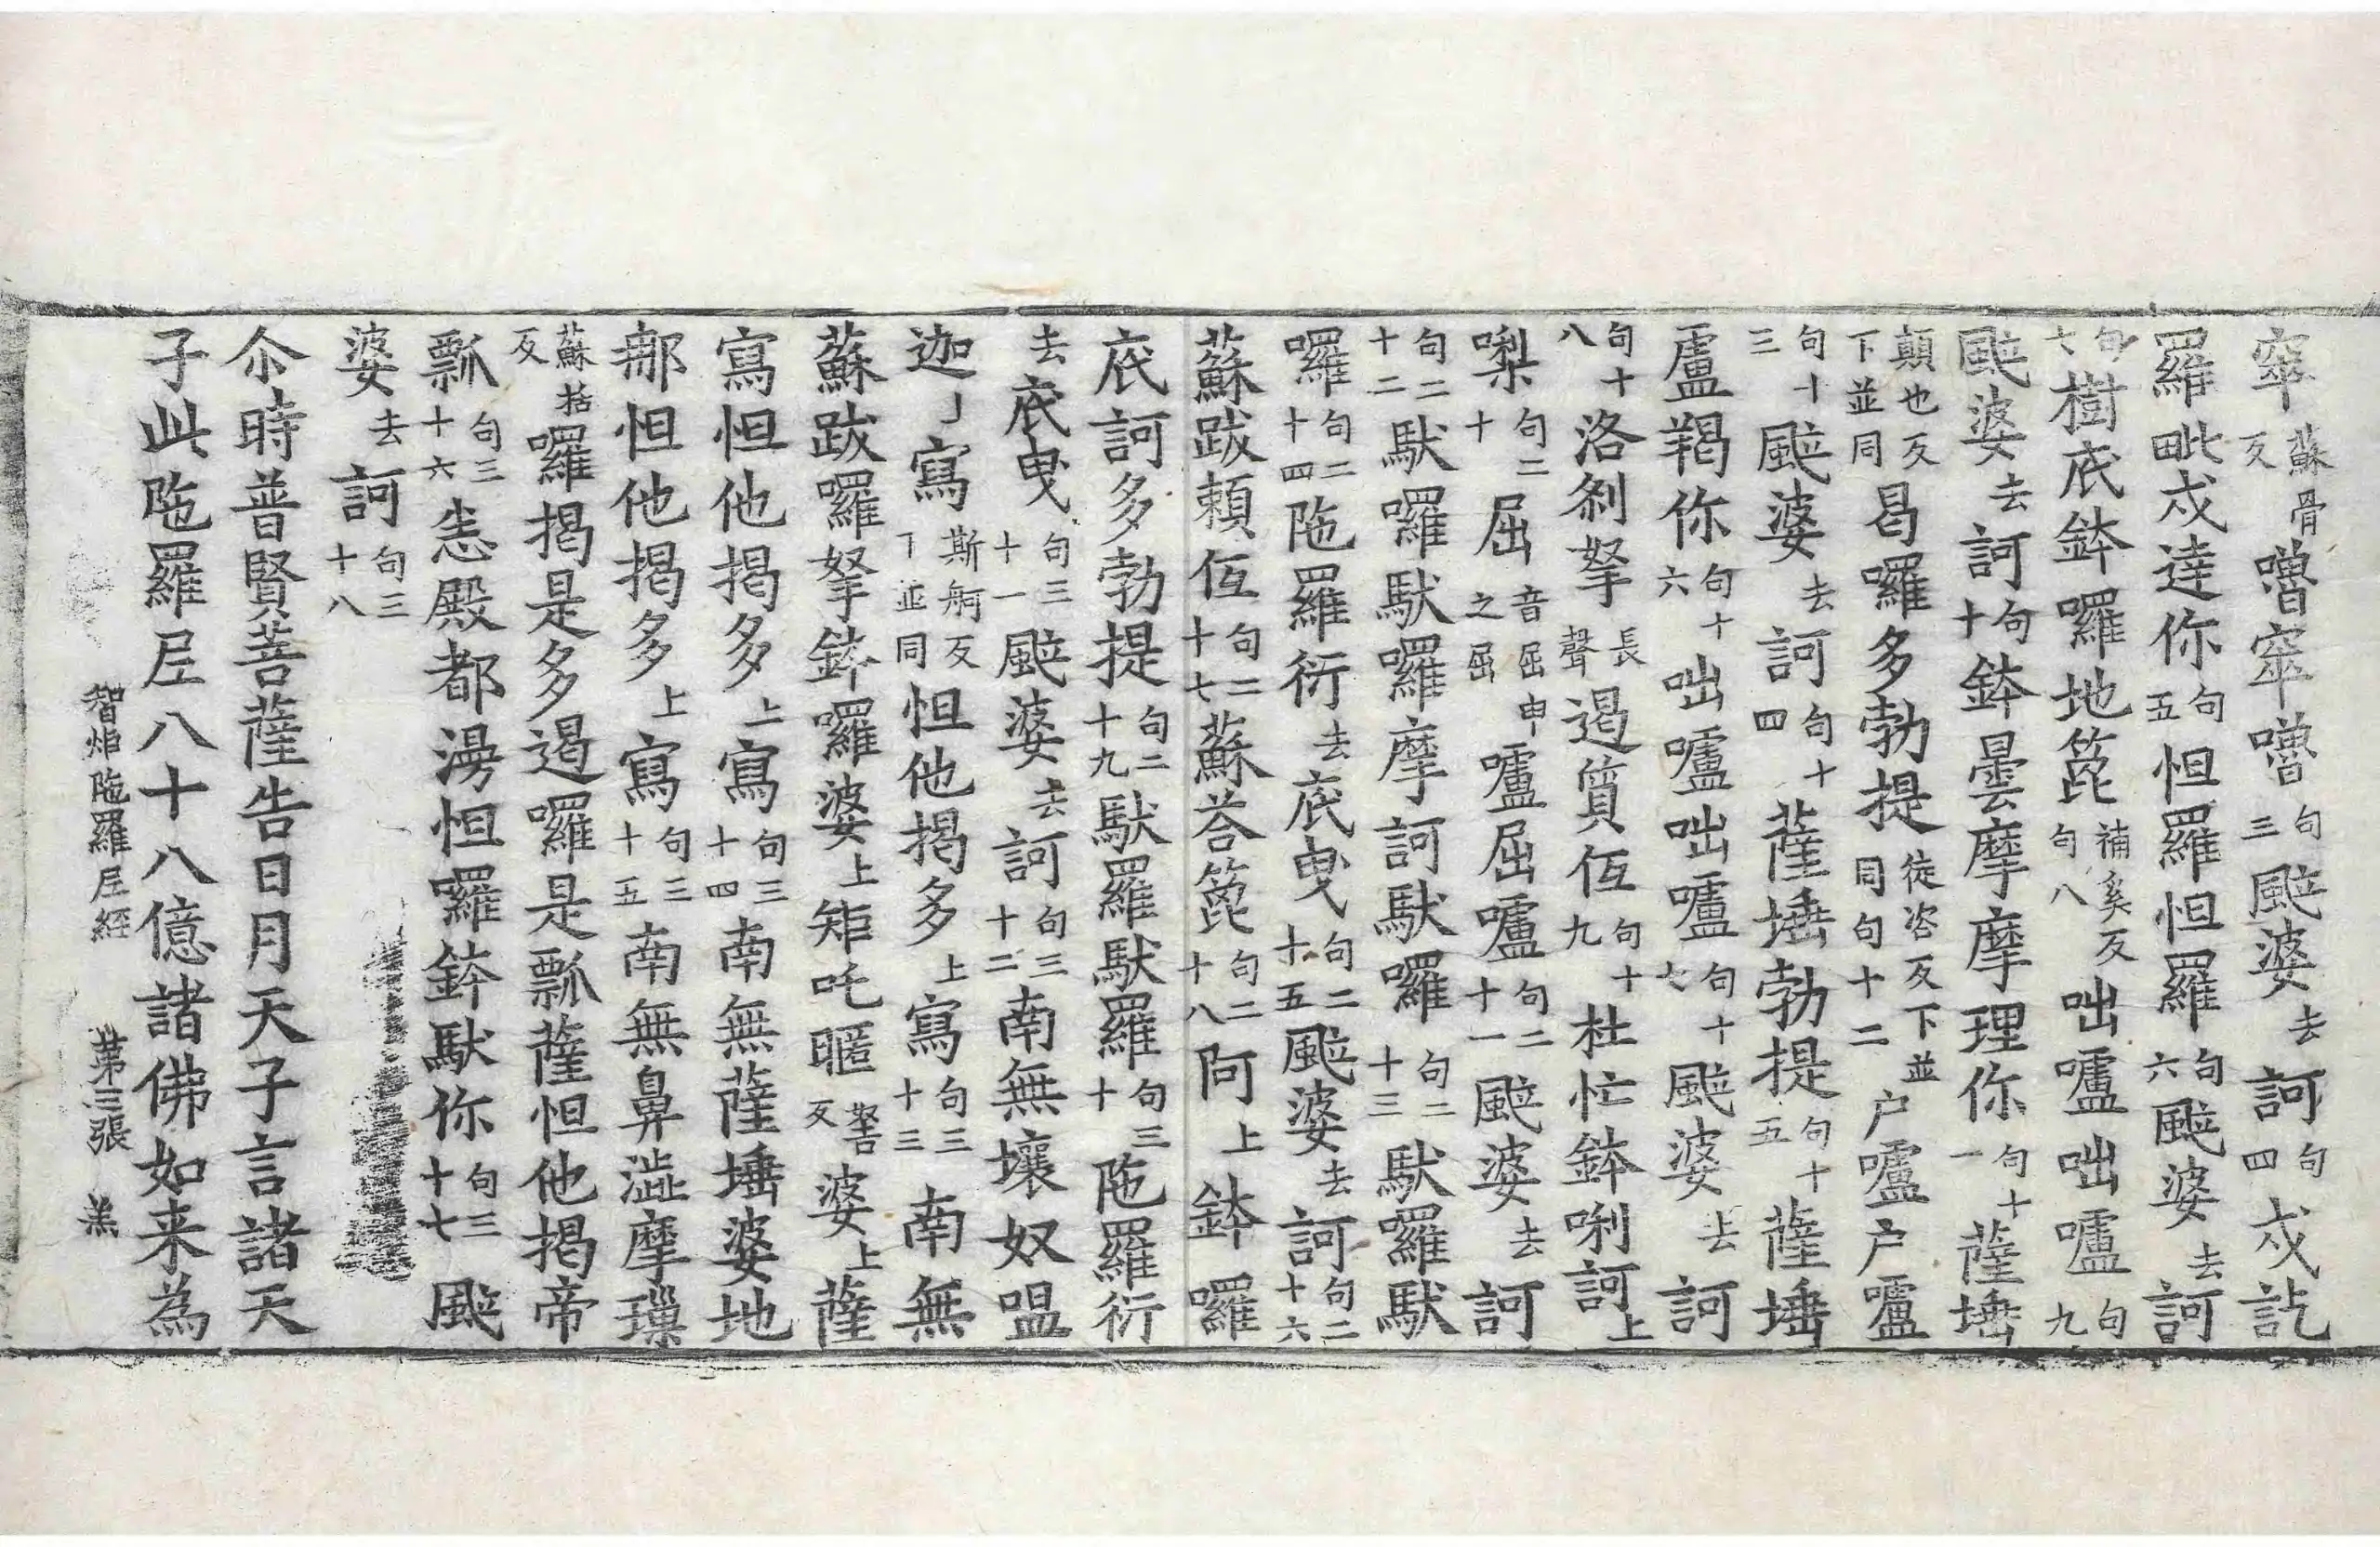 窣蘇骨反嚕窣嚕句三颰婆去訶句四戍訖
羅毗戍達你句五怛羅怛羅句六颰婆去訶
句七樹底鉢囉地箆補奚反句八咄嚧咄嚧句九
颰婆去訶句十鉢曇摩摩理你句十一薩埵
顛也反下並同曷囉多勃提徒咨反下並同句十二户嚧户嚧
句十三颰婆去訶句十四薩埵勃提句十五薩埵
盧羯你句十六咄嚧咄嚧句十七颰婆去訶
句十八洛剎拏長聲遏質仾句十九杜忙鉢唎訶上
㗚句二十屈音屈申之屈嚧屈嚧句二十一颰婆去訶
句二十二馱囉馱囉摩訶馱囉句二十三馱羅馱
囉句二十四陁羅衍去底曳句二十五颰婆去訶句二十六
蘇跋頼仾句二十七蘇荅箆句二十八阿上鉢囉
底訶多勃提句二十九馱羅馱羅句三十陁羅衍
去底曳句三十一颰婆去訶句三十二南無壤奴嗢
迦丿寫斯舸反下並同怛他揭多上寫句三十三南無
蘇跋囉拏鉢囉婆上矩吒暱婆上薩
寫怛他揭多上寫句三十四南無薩埵婆地
那怛他揭多上寫句三十五南無鼻澁摩璅
蘇括反囉揭是多遏囉是瓢薩怛他揭帝
瓢句三十六恚殿都湯怛囉鉢馱你句三十七颰
婆去訶句三十八
尒時普賢菩薩告日月天子言諸天
子此陁羅尼八十八億諸佛如来為
智炬陁羅尼經 第三張 羔